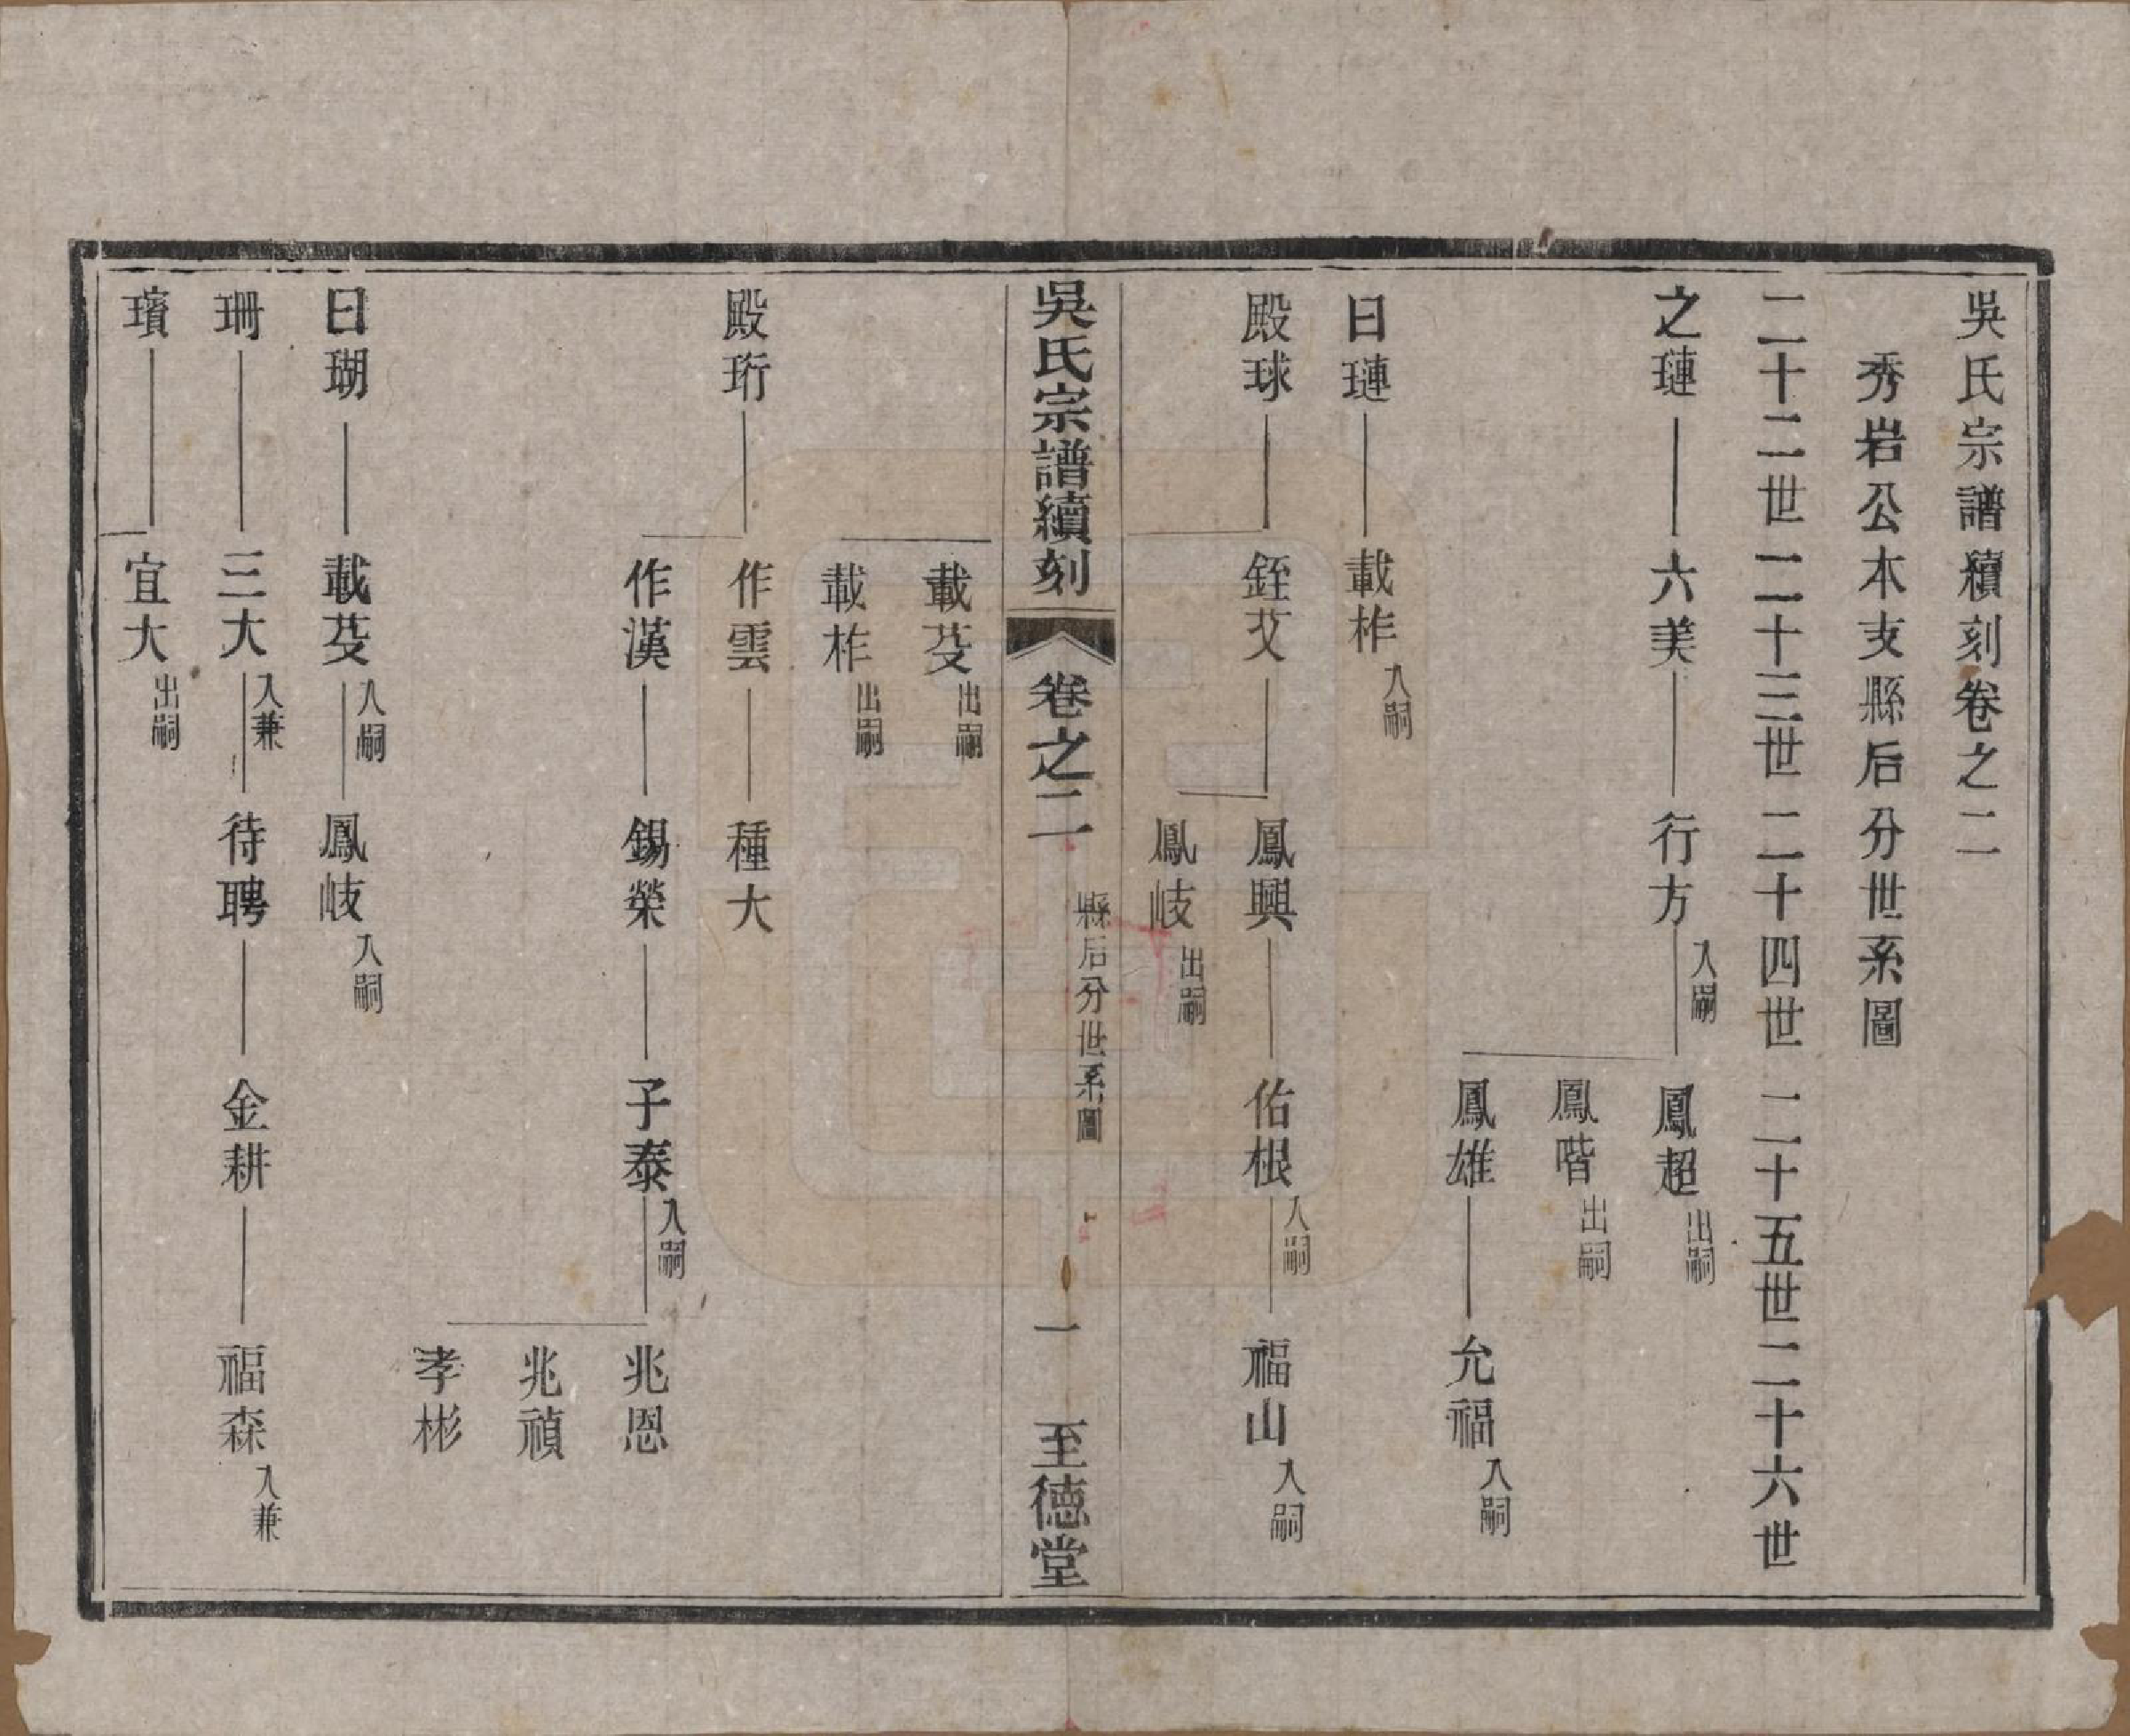 吳氏宗譜續刻卷之二
秀岩公木支縣后分世系圖
二十二世 二十三世 二十四世 二十五世 二十六世
之璉 六美 行方入嗣 鳳超出嗣
鳳喈出嗣
鳳雄 允福入嗣
日璉 載柞入嗣
殿球 銍艾 鳳興 佑根入嗣 福山入嗣
鳳歧出嗣
吳氏宗譜續刻 卷之二 縣后分世系圖 一 至德堂
載芟出嗣
載柞出嗣
殿珩 作雲 種大
作漢 錫榮 子泰入嗣 兆恩
兆禎
孝彬
日瑚 載芟入嗣 鳳歧入嗣
珊 三大入兼 待聘 金耕 福森入兼
璸 宜大出嗣